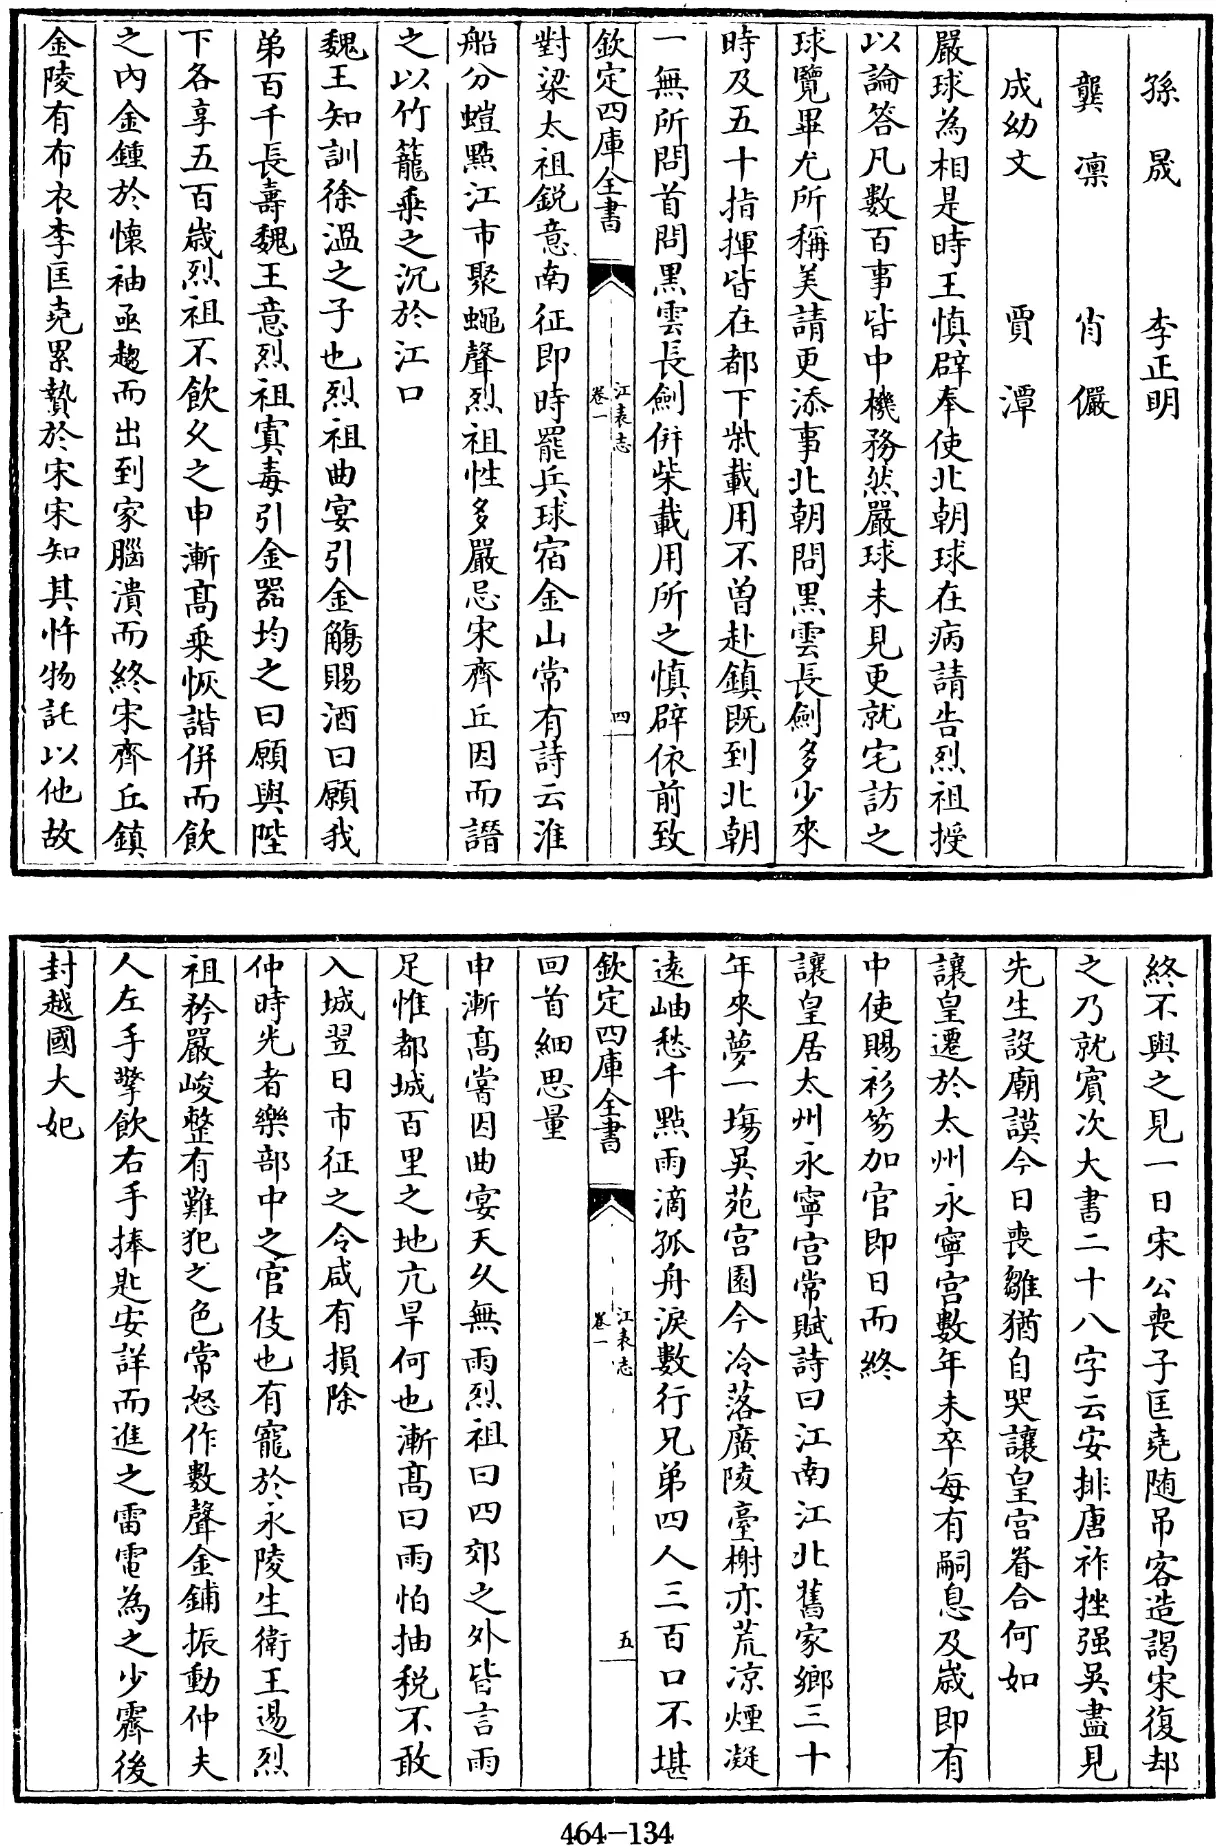 孫晟　李正明
龔凛　肖儼
成幼文　賈潭
嚴球為相是時王慎辟奉使北朝球在病請告烈祖授
以論答凡數百事皆中機務然嚴球未見更就宅訪之
球覽畢尤所稱美請更添事北朝問黒雲長劍多少來
時及五十指揮皆在都下柴載用不曽赴鎮既到北朝
一無所問首問黒雲長劍併柴載用所之慎辟依前致
欽定四庫全書　江表志卷一　四
對梁太祖鋭意南征即時罷兵球宿金山常有詩云淮
船分螘㸃江市聚蠅聲烈祖性多嚴忌宋齊丘因而譖
之以竹籠乗之沉於江口
魏王知訓徐温之子也烈祖曲宴引金觴賜酒曰願我
弟百千長壽魏王意烈祖寘毒引金器均之曰願與陛
下各享五百歳烈祖不飲久之申漸髙乗恢諧併而飲
之内金鍾於懐袖亟趨而出到家腦潰而終宋齊丘鎮
金陵有布衣李匡堯累贄於宋宋知其忤物託以他故
終不與之見一日宋公喪子匡堯随吊客造謁宋復却
之乃就賓次大書二十八字云安排唐祚挫强吳盡見
先生設廟謨今日喪雛猶自哭讓皇宫眷合何如
讓皇遷於太州永寧宫數年未卒每有嗣息及歳即有
中使賜衫笏加官即日而終
讓皇居太州永寧宫常賦詩曰江南江北舊家鄉三十
年來夢一塲吳苑宫闈今冷落廣陵臺榭亦荒凉煙凝
遠岫愁千㸃雨滴孤舟淚數行兄弟四人三百口不堪
欽定四庫全書　江表志卷一　五
回首細思量
申漸髙嘗因曲宴天久無雨烈祖曰四郊之外皆言雨
足惟都城百里之地亢旱何也漸髙曰雨怕抽税不敢
入城翌日市征之令咸有損除
仲時光者樂部中之官伎也有寵於永陵生衛王逷烈
祖矜嚴峻整有難犯之色常怒作數聲金鋪振動仲夫
人左手擎飲右手捧匙安詳而進之雷電為之少霽後
封越國大妃
464-134